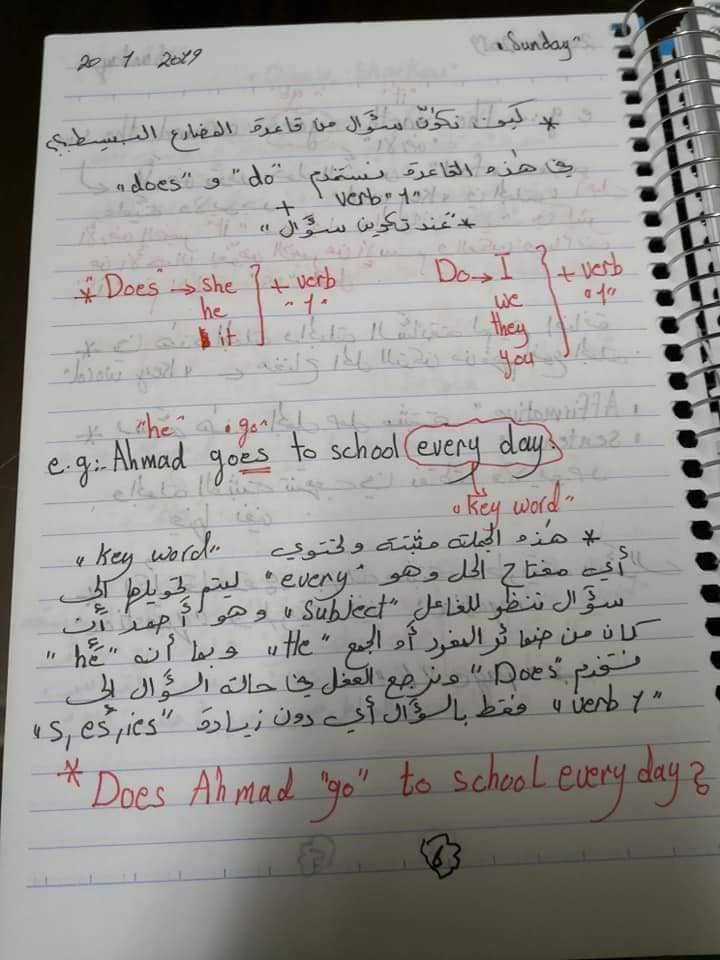 20 1 2019 "Sunday"
* كيف نكوّن سؤال من قاعدة المضارع البسيط؟؟
في هذه القاعدة نستخدم "do" و "does"
+ verb "1"
* "عند تكوين سؤال"
* "Does" → she } + verb Do → I } + verb
he "1" we "1"
it they
you
"he" "go"
e.g:- Ahmad goes to school every day.
"Key word"
* هذه الجملة مثبتة وتحتوي "Key word"
أي مفتاح الحل وهو "every" ليتم تحويلها الى
سؤال ننظر للفاعل "Subject" وهو أحمد أن
كان من ضمائر المفرد أو الجمع "He" وبما أنه "he"
نستخدم "Does" ونرجع الفعل في حالة السؤال الى
"verb 1" فقط بالسؤال أي دون زيادة "s, es, ies"
* Does Ahmad "go" to school every day?
6